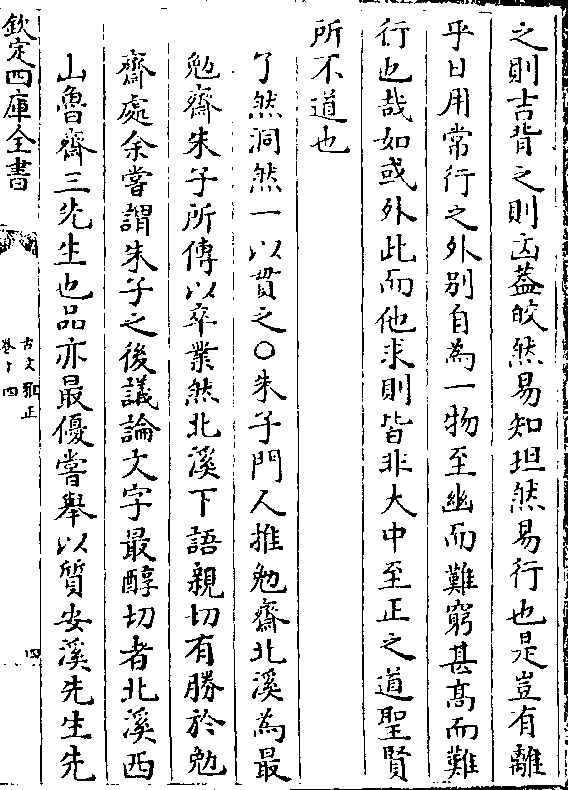 之則吉背之則凶蓋皎然易知坦然易行也是豈有離
乎日用常行之外别自為一物至幽而難窮甚髙而難
行也哉如或外此而他求則皆非大中至正之道聖賢
所不道也
了然洞然一以貫之○朱子門人推勉齋北溪為最
勉齋朱子所傳以卒業然北溪下語親切有勝於勉
齋處余嘗謂朱子之後議論文字最醇切者北溪西
山魯齋三先生也品亦最優嘗舉以質安溪先生先
欽定四庫全書
古文雅正
卷十四
四